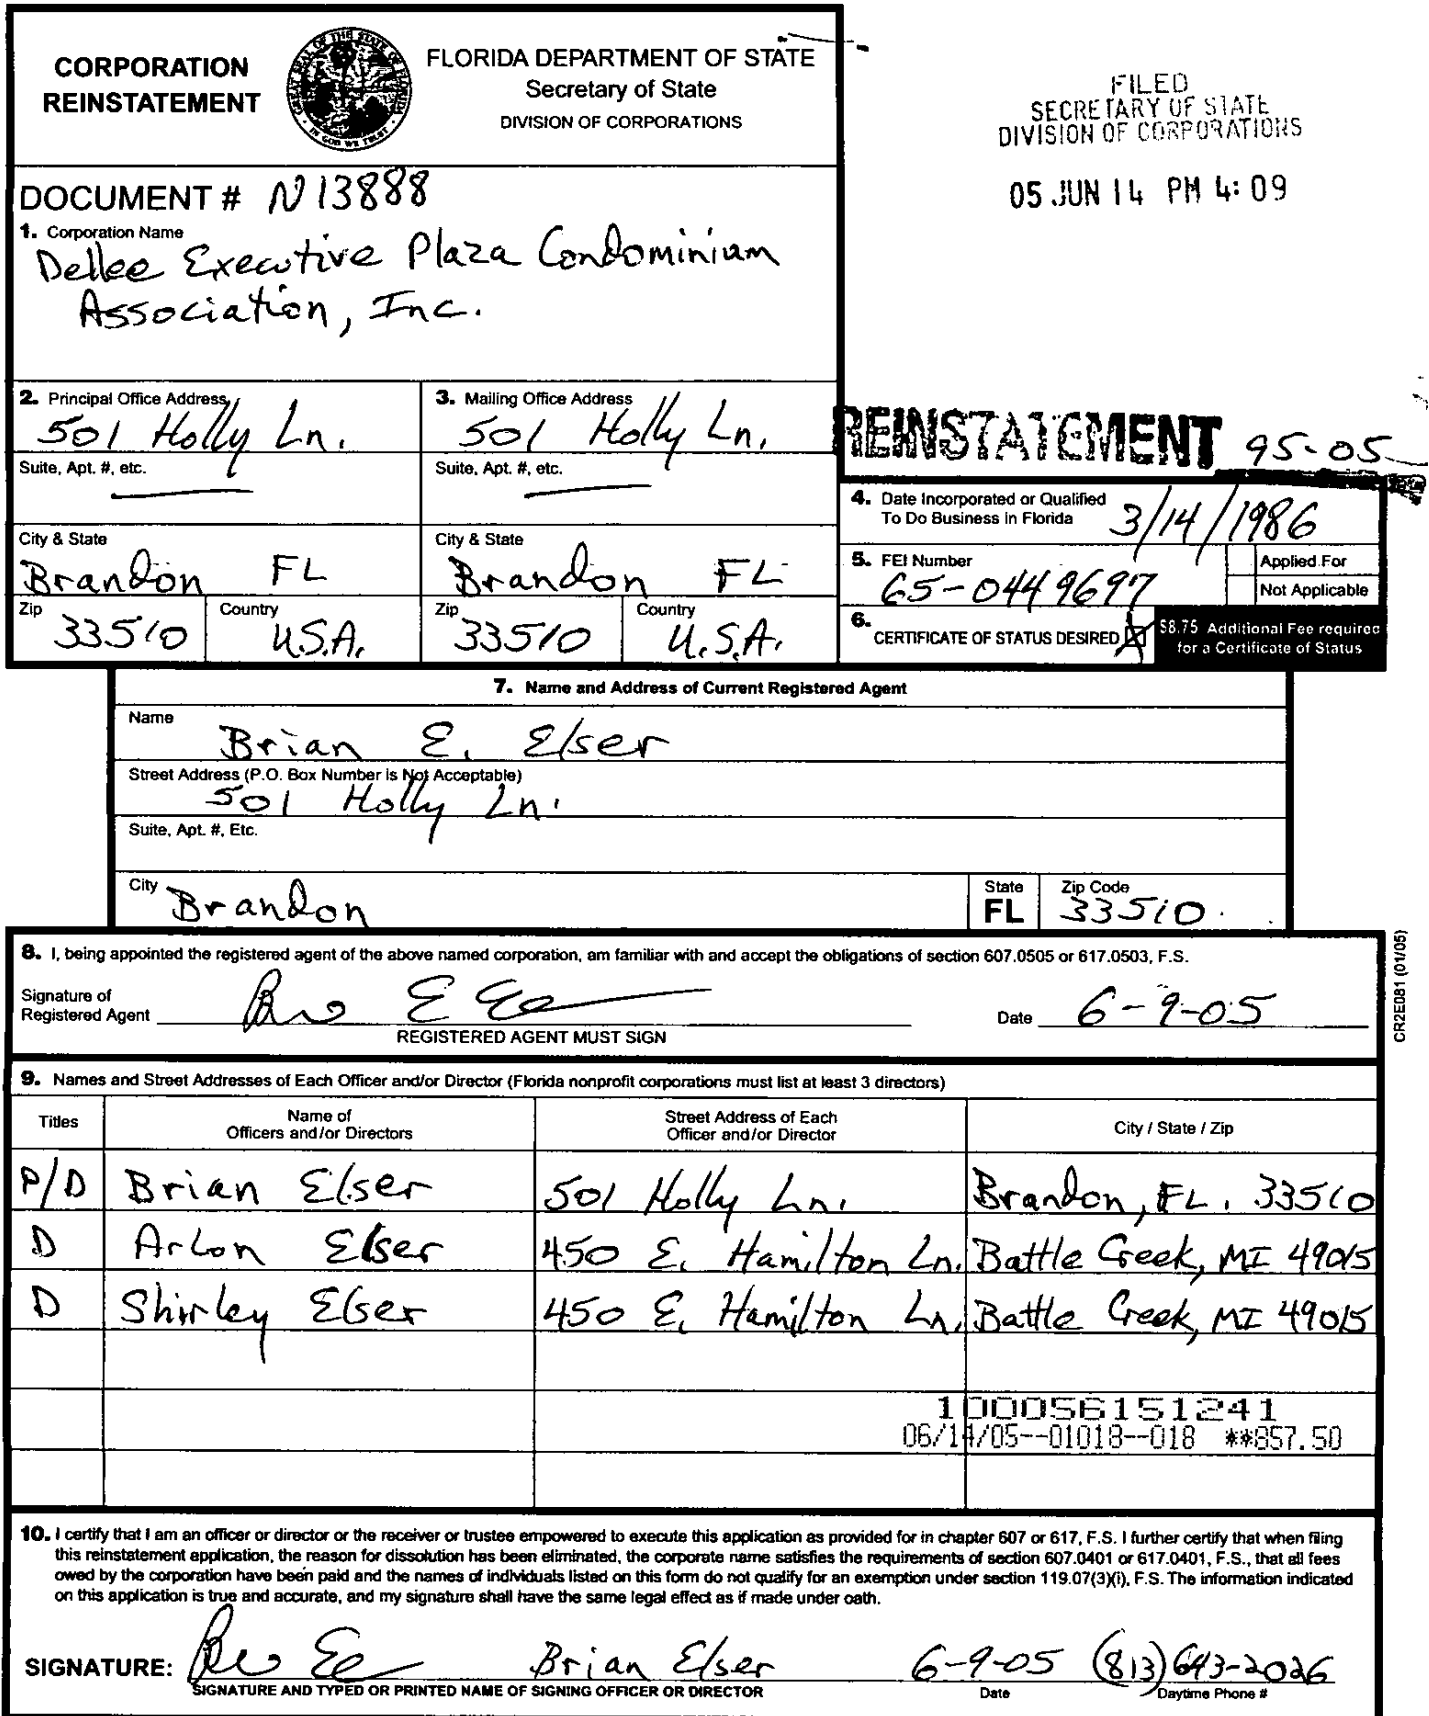 CORPORATION
REINSTATEMENT
GREAT SEAL OF THE STATE OF FLORIDA
IN GOD WE TRUST
FLORIDA DEPARTMENT OF STATE
Secretary of State
DIVISION OF CORPORATIONS
FILED
SECRETARY OF STATE
DIVISION OF CORPORATIONS
05 JUN 14 PM 4:09
DOCUMENT # N13888
1. Corporation Name
Dellee Executive Plaza Condominium
Association, Inc.
2. Principal Office Address
501 Holly Ln.
Suite, Apt. #, etc.
City & State
Brandon FL
Zip 33510 Country U.S.A.
3. Mailing Office Address
501 Holly Ln.
Suite, Apt. #, etc.
City & State
Brandon FL
Zip 33510 Country U.S.A.
REINSTATEMENT 95-05
4. Date Incorporated or Qualified
To Do Business in Florida 3/14/1986
5. FEI Number
65-0449697
Applied For
Not Applicable
6. CERTIFICATE OF STATUS DESIRED X
$8.75 Additional Fee required
for a Certificate of Status
7. Name and Address of Current Registered Agent
Name
Brian E. Elser
Street Address (P.O. Box Number is Not Acceptable)
501 Holly Ln.
Suite, Apt. #, Etc.
City Brandon
State FL
Zip Code 33510
8. I, being appointed the registered agent of the above named corporation, am familiar with and accept the obligations of section 607.0505 or 617.0503, F.S.
Signature of
Registered Agent
Date 6-9-05
REGISTERED AGENT MUST SIGN
CR2E081 (01/05)
9. Names and Street Addresses of Each Officer and/or Director (Florida nonprofit corporations must list at least 3 directors)
Titles
Name of
Officers and/or Directors
Street Address of Each
Officer and/or Director
City / State / Zip
P/D Brian Elser 501 Holly Ln. Brandon, FL. 33510
D Arlon Elser 450 E. Hamilton Ln. Battle Creek, MI 49015
D Shirley Elser 450 E. Hamilton Ln. Battle Creek, MI 49015
100056151241
06/14/05--01018--018 **857.50
10. I certify that I am an officer or director or the receiver or trustee empowered to execute this application as provided for in chapter 607 or 617, F.S. I further certify that when filing
this reinstatement application, the reason for dissolution has been eliminated, the corporate name satisfies the requirements of section 607.0401 or 617.0401, F.S., that all fees
owed by the corporation have been paid and the names of individuals listed on this form do not qualify for an exemption under section 119.07(3)(i), F.S. The information indicated
on this application is true and accurate, and my signature shall have the same legal effect as if made under oath.
SIGNATURE: Brian Elser 6-9-05 (813)643-2026
SIGNATURE AND TYPED OR PRINTED NAME OF SIGNING OFFICER OR DIRECTOR
Date
Daytime Phone #